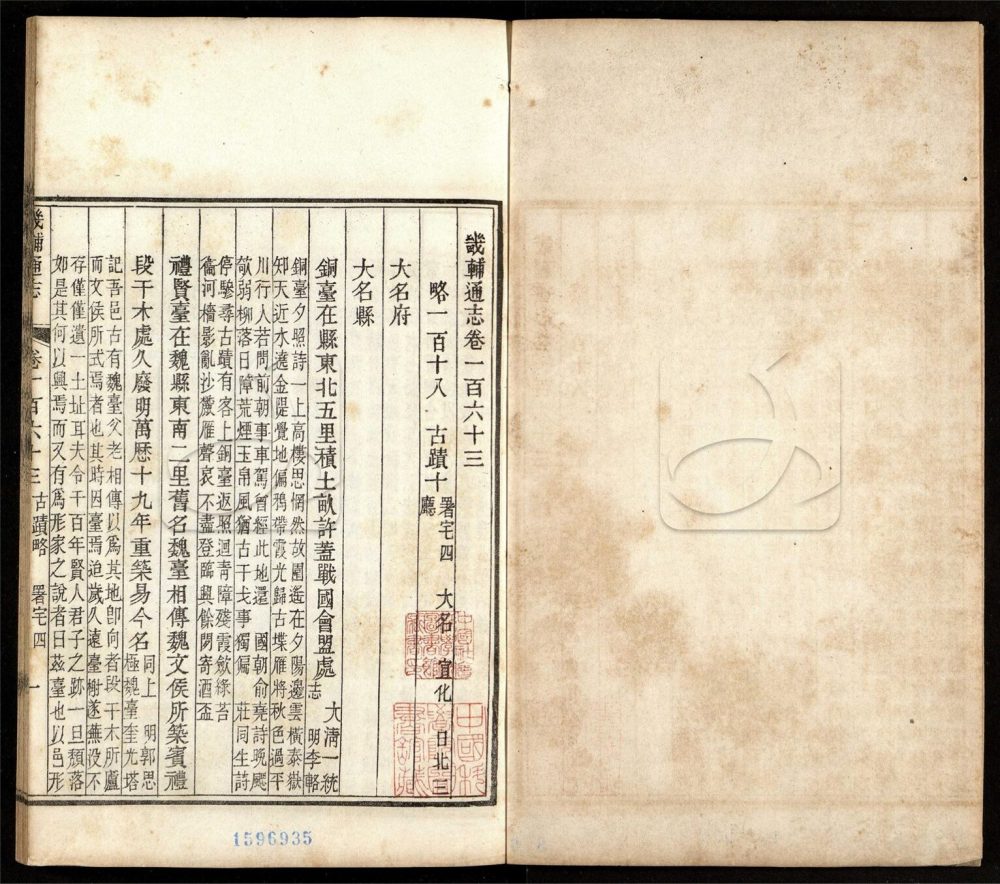 畿輔通志卷一百六十三
略一百十八 古蹟十 署宅四 大名 宣化 口北三
廳
大名府
大名縣
銅臺在縣東北五里積土畝許蓋戰國會盟處 大清一統
志 明李輅
銅臺夕照詩一上高樓思惘然故園遙在夕陽邊雲橫泰嶽
知天近水遶金隄覺地偏鴉帶霞光歸古堞雁將秋色過平
川行人若問前朝事車駕曾經此地還 國朝俞堯詩晚颸
欹弱柳落日障荒煙玉帛風猶古干戈事獨偏 莊同生詩
停驂尋古蹟有客上銅臺返照迴青障殘霞斂綠苔
衞河檣影亂沙黨雁聲哀不盡登臨興餘閒寄酒盃
禮賢臺在魏縣東南二里舊名魏臺相傳魏文侯所築賓禮
段干木處久廢明萬厯十九年重築易今名 同上 明郭思
極魏臺奎光塔
記吾邑古有魏臺父老相傳以爲其地卽向者段干木所廬
而文侯所式焉者也其時因臺焉迨歲久遠臺榭遂蕪沒不
存僅僅遺一土址耳夫令千百年賢人君子之跡一旦頹落
如是其何以興焉而又有爲形家之說者曰茲臺也以邑形
畿輔通志 卷一百六十三 古蹟略 署宅四 一
1596935